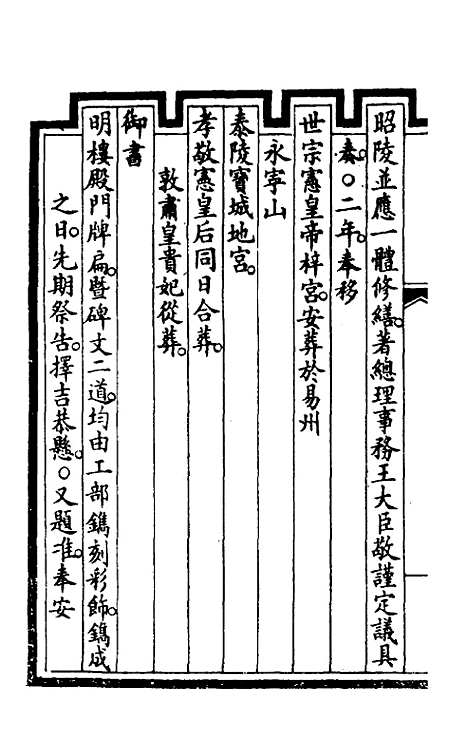 昭陵並應一體修繕。著總理事務王大臣敬謹定議具
奏。○二年。奉移
世宗憲皇帝梓宮。安葬於易州
永寧山
泰陵寶城地宮。
孝敬憲皇后同日合葬。
敦肅皇貴妃從葬。
御書
明樓殿門牌扁。暨碑文二道。均由工部鐫刻彩飾。鐫成
之日。先期祭告。擇吉恭懸。○又題准。奉安